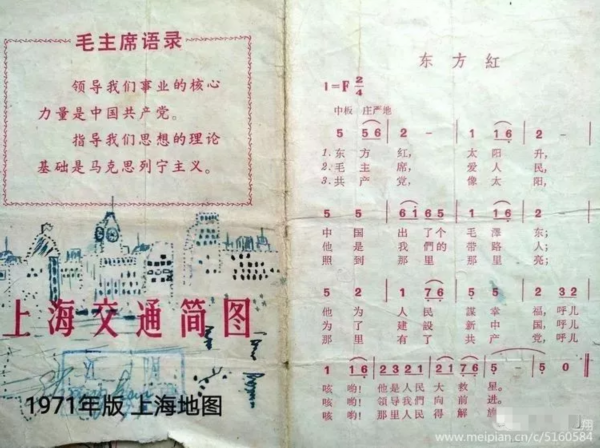 毛主席语录
领导我们事业的核心
力量是中国共产党。
指导我们思想的理论
基础是马克思列宁主义。
上海交通简图
1971年版 上海地图
东方红
1=F 2/4
中板 庄严地
5 56 2 - 1 16 2 -
1.东方红，太阳升，
2.毛主席，爱人民，
3.共产党，像太阳，
5 5 6165 1 16 2 -
中国出了个毛泽东；
他是我們的带路人；
照到那里那里亮；
5 2 1 76 5 5 2 32
他为人民謀幸福，呼儿
为了建設新中国，呼儿
那里有了共产党，呼儿
咳哟！他是人民大救星。
咳哟！领导我們向前进。
咳哟！那里人民得解放。
www.meipian.cn/c/5160584